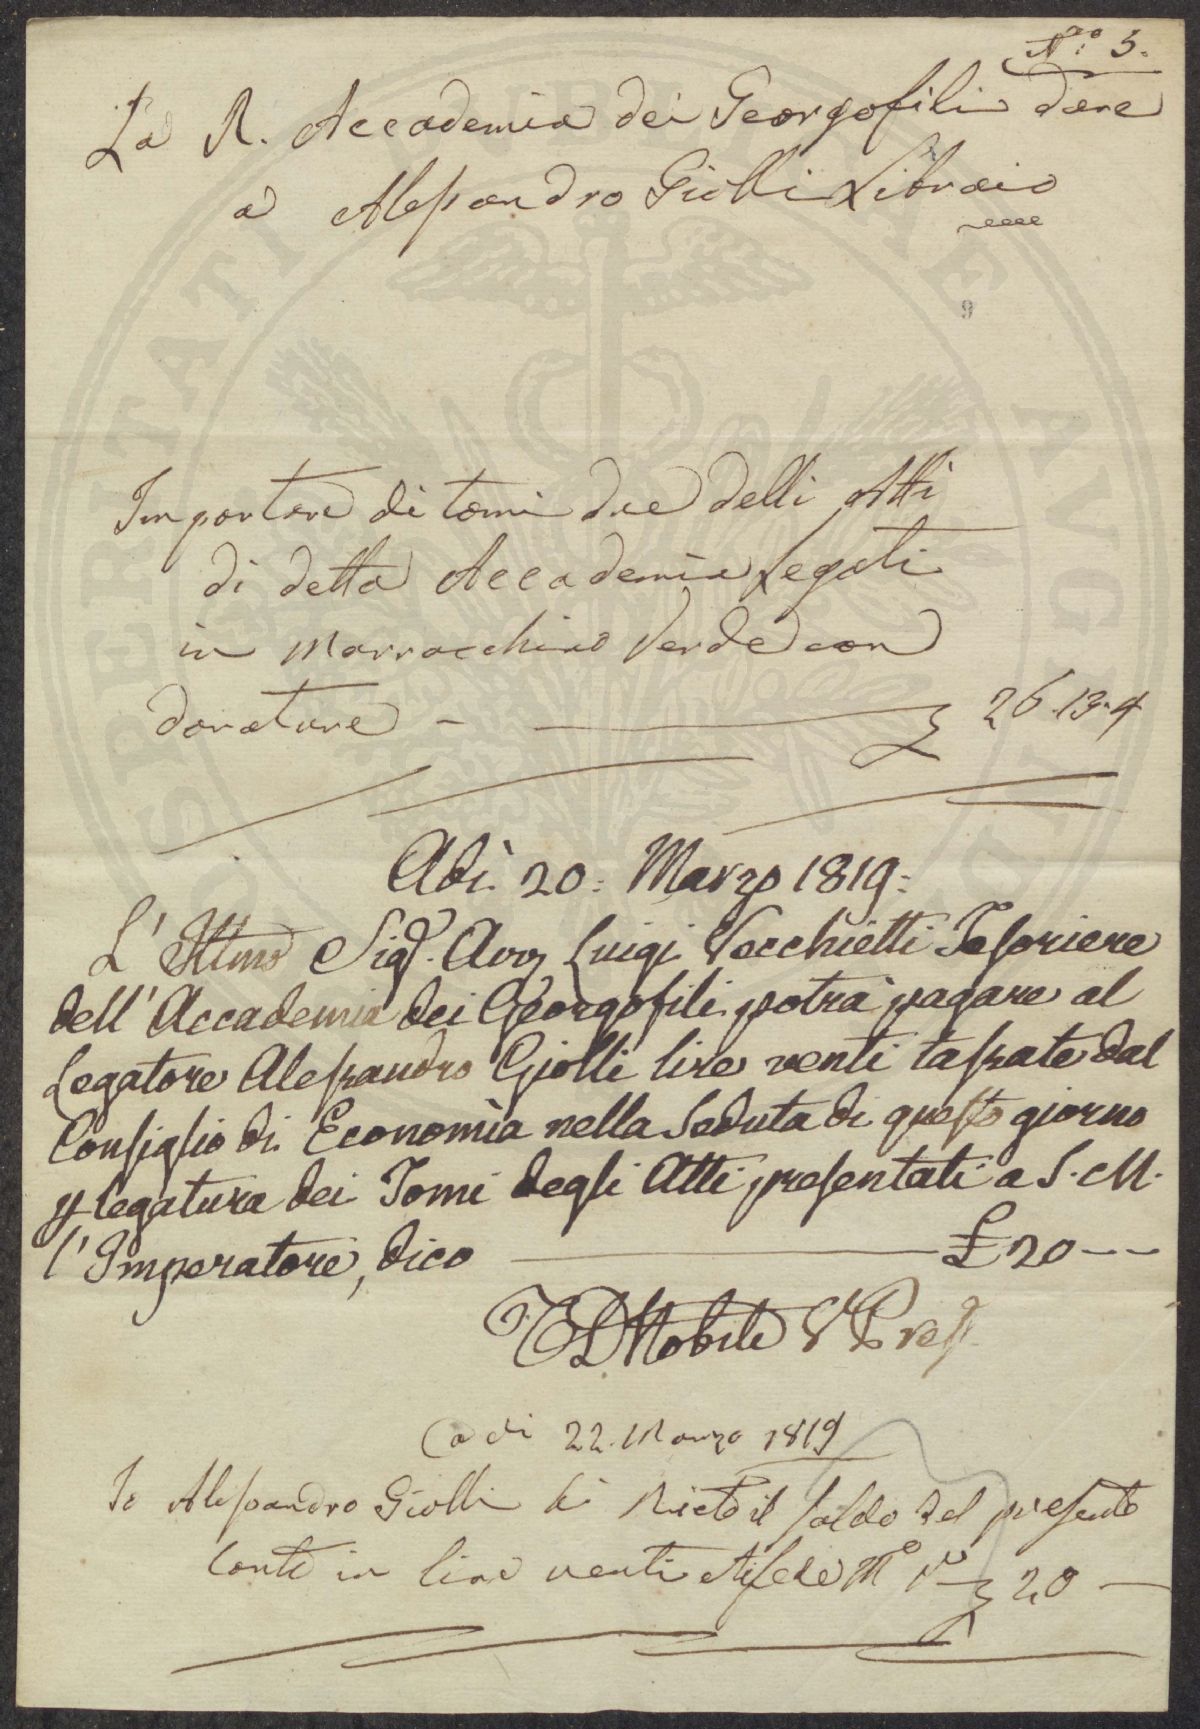 N.° 5.
La R. Accademia dei Georgofili dare
a Alessandro Giolli Libraio
9
Importare di tomi due delli Atti
di detta Accademia Legati
in Marrocchino Verde con
dorature - £ 26.13.4
Adì 20: Marzo 1819:
L'Illmo Sigr. Avv. Luigi Vecchietti Tesoriere
dell'Accademia dei Georgofili potrà pagare al
Legatore Alessandro Giolli lire venti tassate dal
Consiglio di Economia nella Seduta di questo giorno
p legatura dei Tomi degli Atti presentati a S. M.
l'Imperatore, dico £ 20 --
Nobili V. Pres.
adi 22. Marzo 1819
Io Alessandro Giolli ho Riceto il saldo del presente
Conto in lire venti £ 20 —
PROSPERITATI PUBLICAE AUGENDAE